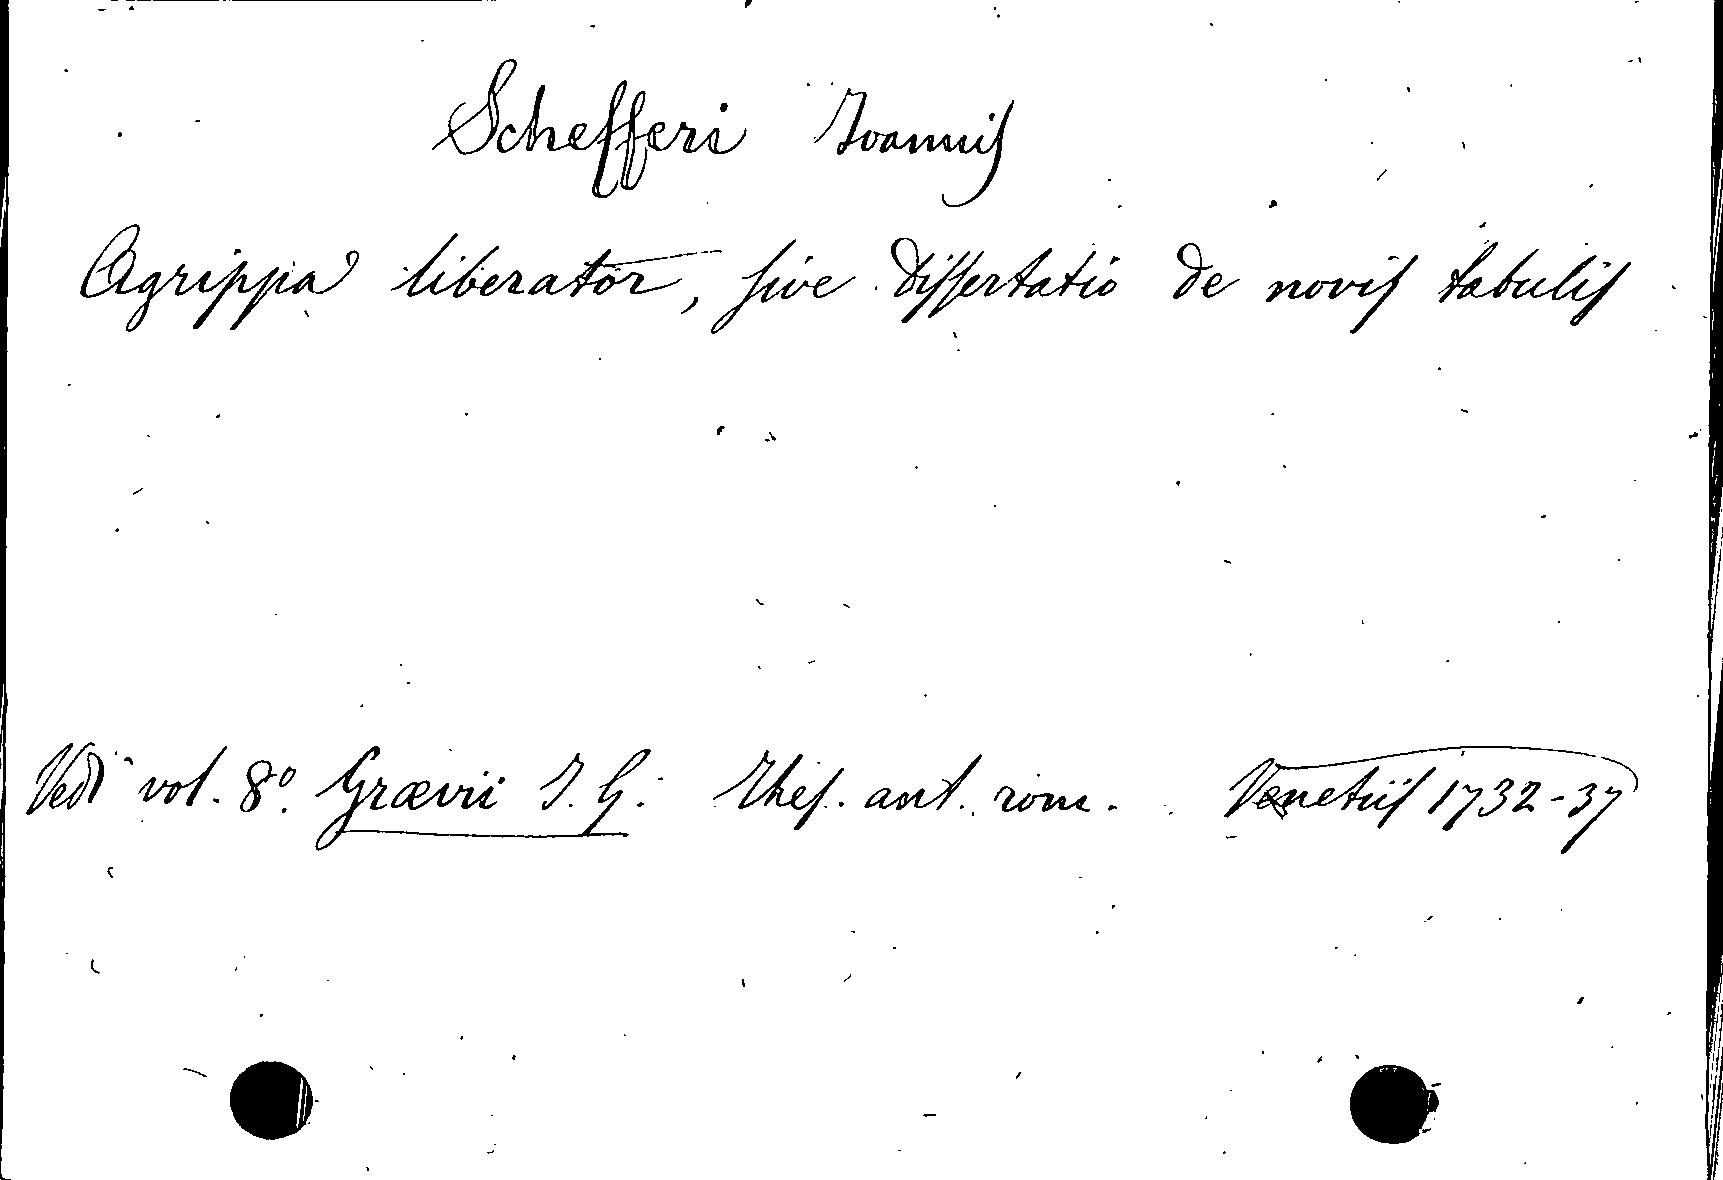 Schefferi Ioannis
Agrippa liberator, sive dissertatio de novis tabulis
Vedi vol. 8º. Grævii I. G. Thes. ant. rom. Venetiis 1732-37